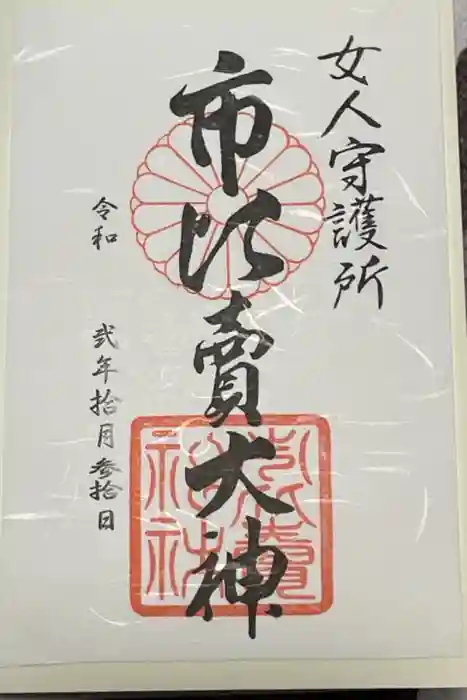 女人守護所
市比賣大神
市比賣神社
令和 弐年拾月参拾日